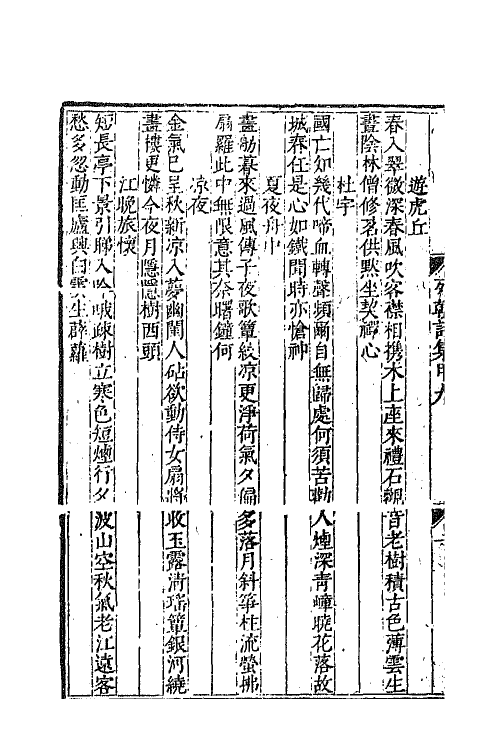 列朝詩集甲九
遊虎丘
春入翠微深春風吹客襟相携木上座來禮石觀音老樹積古色薄雲生
晝陰林僧修茗供默坐契禪心
杜宇
國亡知幾代啼血轉聲頻爾自無歸處何須苦勸人煙深青嶂曉花落故
城春任是心如鐵聞時亦愴神
夏夜舟中
畫舫暮來過風傳子夜歌簟紋凉更淨荷氣夕偏多落月斜箏柱流螢拂
扇羅此中無限意其奈曙鐘何
凉夜
金氣已呈秋新凉入夢幽閨人砧欲動侍女扇將收玉露清瑤簟銀河繞
畫樓更憐今夜月隱隱樹西頭
江晚旅懷
短長亭下景引睇入吟哦疎樹立寒色短煙行夕波山空秋氣老江遠客
愁多忽動匡廬興白雲生薜蘿